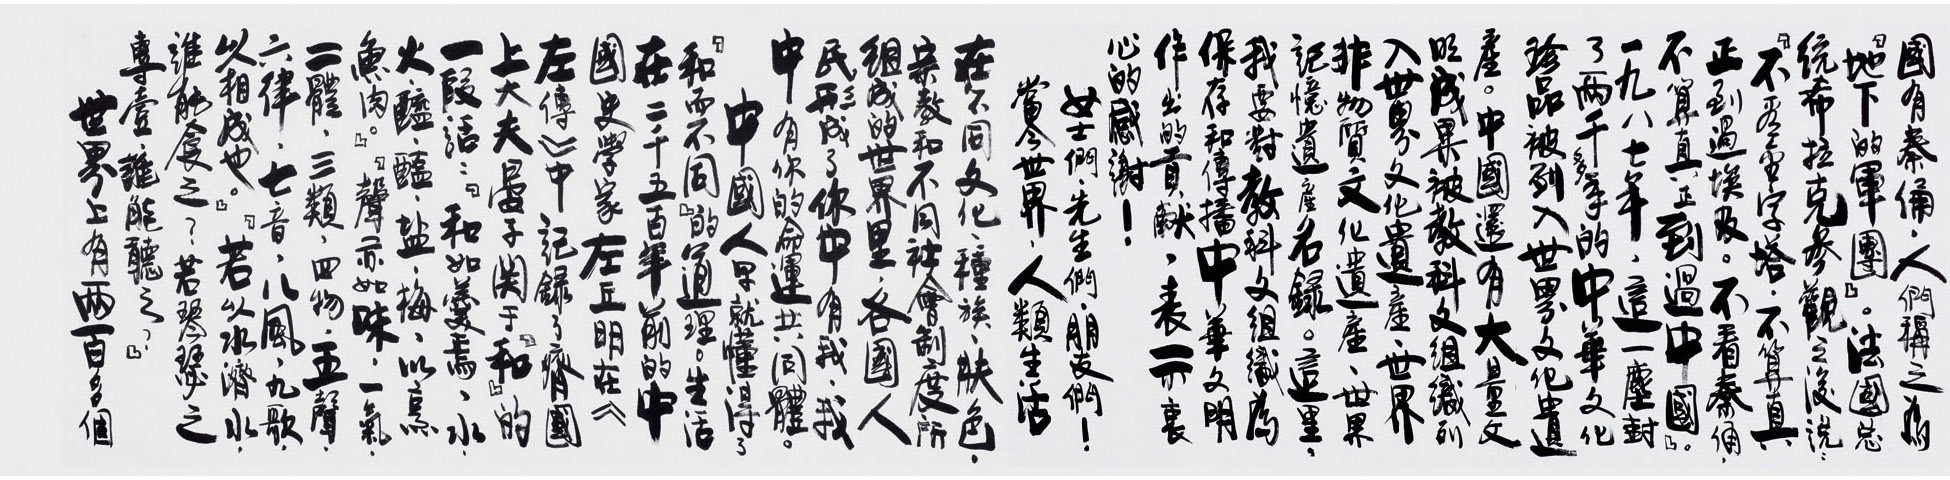 國有秦俑,人們稱之為
『地下的軍團』。法國总
统希拉克參觀之後説:
『不看金字塔,不算真
正到過埃及。不看秦俑,
不算真正到過中國』。
一九八七年,這一塵封
了兩千多年的中華文化
珍品被列入世界文化遺
產。中國還有大量文
明成果被教科文組織列
入世界文化遺產、世界
非物質文化遺產、世界
記憶遺產名録。這里,
我要對教科文組織為
保存和傳播中華文明
作出的貢獻,表示衷
心的感謝!
女士們、先生們、朋友們!
當今世界,人類生活
在不同文化、種族、膚色、
宗教和不同社會制度所
組成的世界里,各國人
民形成了你中有我、我
中有你的命運共同體。
中國人早就懂得了
『和而不同』的道理。生活
在二千五百年前的中
國史學家左丘明在《
左傳》中記録了齊國
上大夫晏子関于『和』的
一段話:『和如羹焉,水、
火、醯、醢、盐、梅,以烹
魚肉。』『聲亦如味,一氣,
二體,三類,四物,五聲,
六律,七音,八風,九歌,
以相成也。』『若以水濟水,
誰能食之?若琴瑟之
專壹,誰能聽之?』
世界上有兩百多個